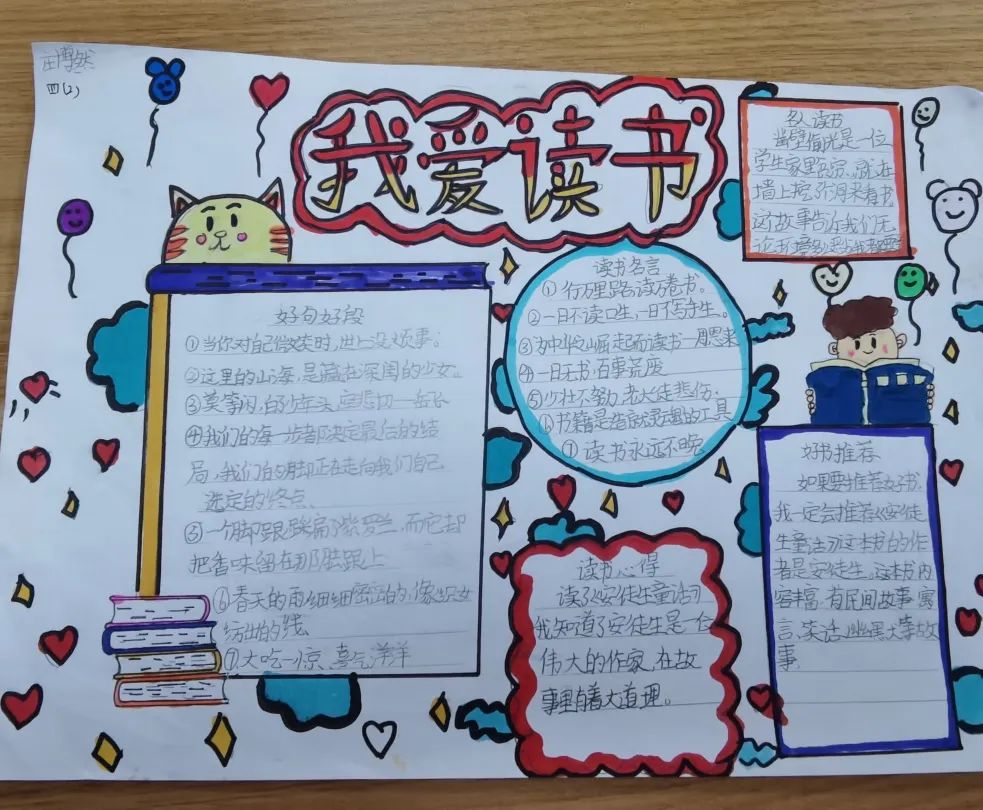 博然
四(2)
我爱读书
好句好段
①当你对自己微笑时,世上没烦事。
②这里的山海,是藏在深闺的少女。
③莫等闲,白少年头,空悲切——岳飞
④我们的每一步都决定最后的结
局,我们的脚正在走向我们自己
选定的终点
⑤一个脚跟踩扁了紫罗兰,而它却
把香味留在那脚跟上
⑥春天的雨细细密密的,像织女
纺出的线
⑦大吃一惊、喜气洋洋
读书名言
①行万里路,读万卷书。
②一日不读口生,一日不写手生。
③为中华之崛起而读书——周恩来
④一日无书,百事荒废
⑤少壮不努力,老大徒悲伤
⑥书籍是造就灵魂的工具
⑦读书永远不晚
读书心得
读了《安徒生童话》
我知道了安徒生是一个
伟大的作家,在故
事里有着大道理。
名人读书
凿壁偷光是一位
学生家里贫穷,就在
墙上挖了个洞来看书
这故事告诉我们无
论环境多
好书推荐
如果要推荐好书,
我一定会推荐《安徒
生童话》这本书的作
者是安徒生。这本书内
容丰富,有民间故事、寓
言、笑话、幽默大事故
事。